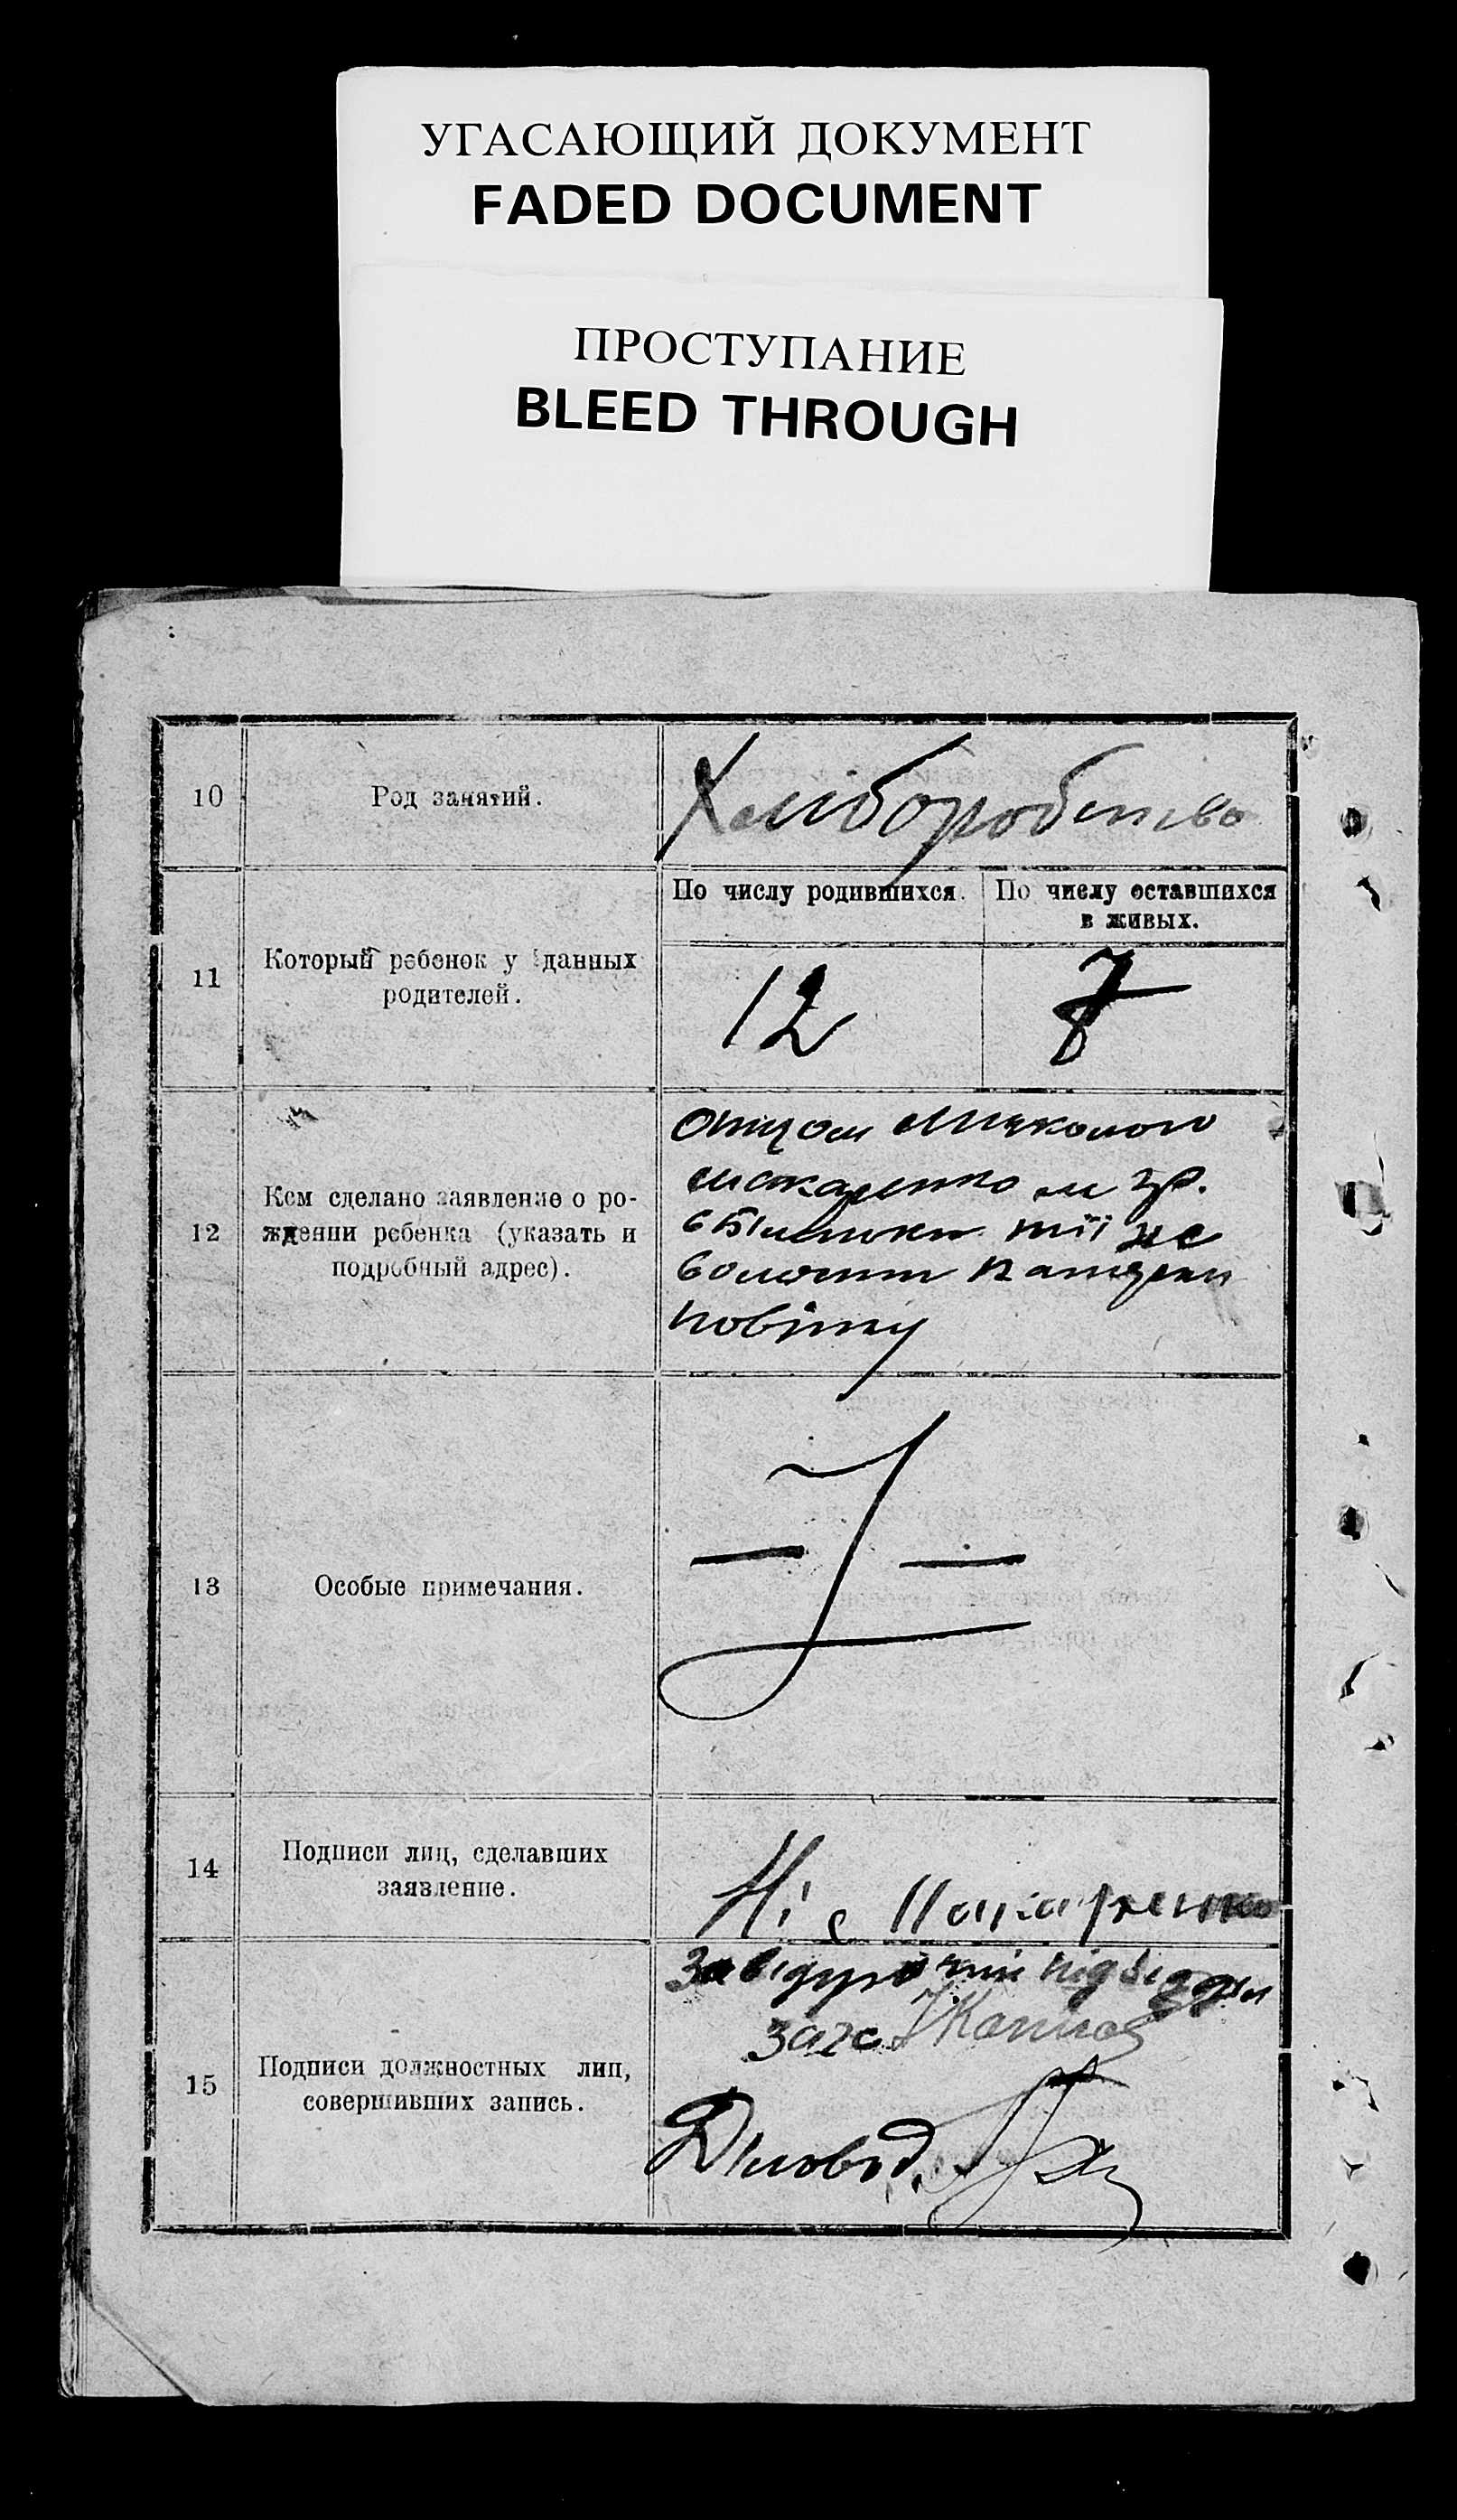 УГАСАЮЩИЙ ДОКУМЕНТ
FADED DOCUMENT
ПРОСТУПАНИЕ
BLEED THROUGH
10 Род занятий. Хліборобство
11 Который ребенок у данных родителей.
По числу родившихся. По числу оставшихся
в живых.
12
12 Кем сделано заявление о ро-
ждении ребенка (указать и
подробный адрес).
Отцом Миколою
Макаренко
тії же
волости
повіту
13 Особые примечания.
14 Подписи лиц, сделавших
заявление.
Макаренко
15 Подписи должностных лиц,
совершивших запись.
Завідуючий підвідділом
загс
Діловод.